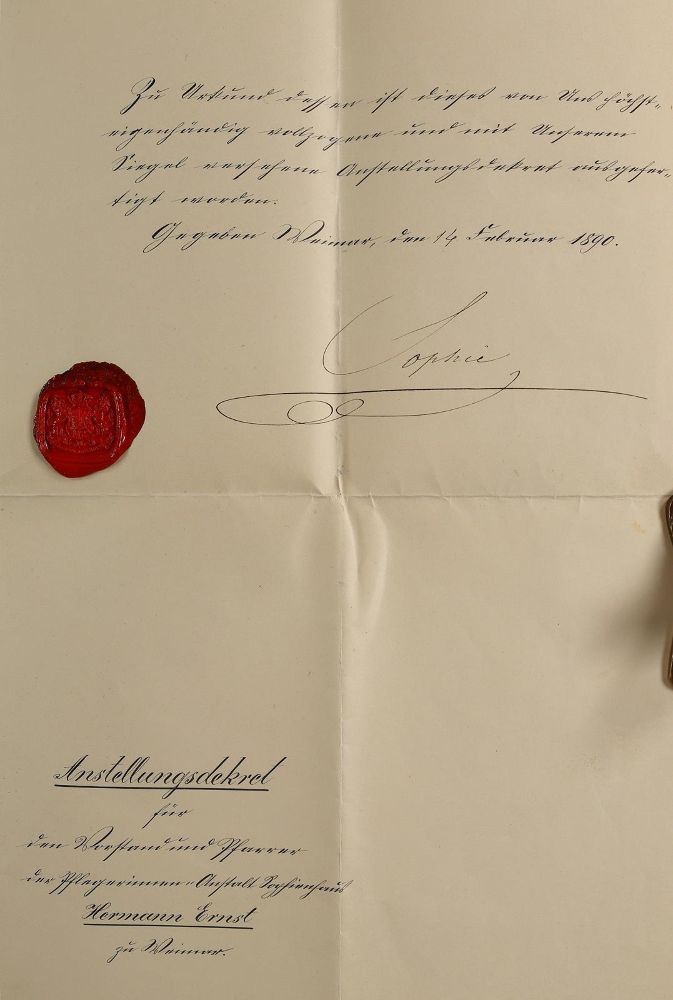 Zu Urkund dessen ist dieses von Uns höchst-
eigenhändig vollzogene und mit Unserem
Siegel versehene Anstellungsdekret ausgefer-
tigt worden.
Gegeben Weimar, den 14 Februar 1890.
Sophie
Anstellungsdekret
für
den Vorstand und Pfarrer
der Pflegerinnen-Anstalt Sophienhaus
Hermann Ernst
zu Weimar.